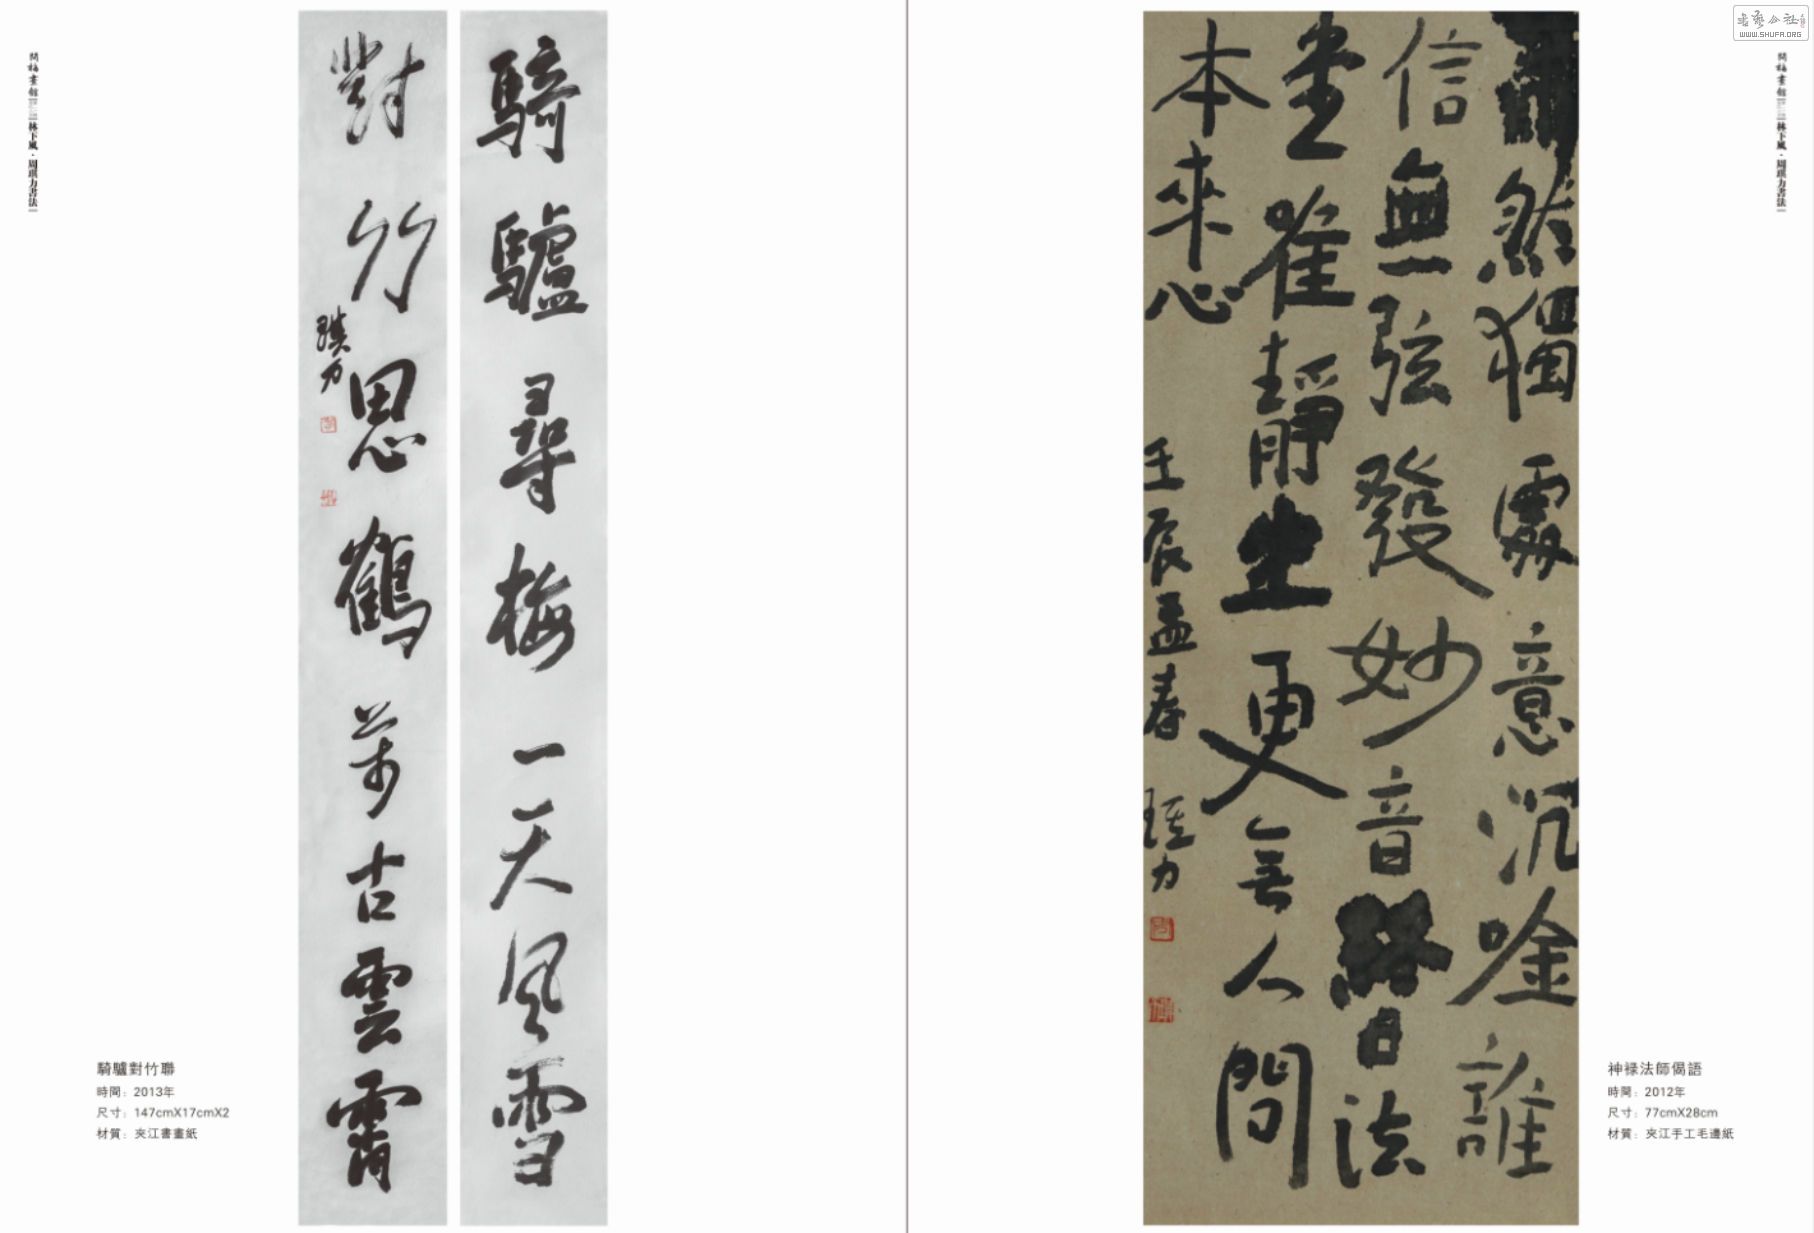 騎驢尋梅一天風雪
對竹思鶴萬古雲霄
琪力
騎驢對竹聯
時間：2013年
尺寸：147cmX17cmX2
材質：夾江書畫紙
林下風·周琪力書法
蕭然獨處意沉唫誰
信無弦發妙音終日法
堂唯靜坐更無人問
本來心
壬辰孟春 琪力
神祿法師偈語
時間：2012年
尺寸：77cmX28cm
材質：夾江手工毛邊紙
林下風·周琪力書法
WWW.SHUFA.ORG